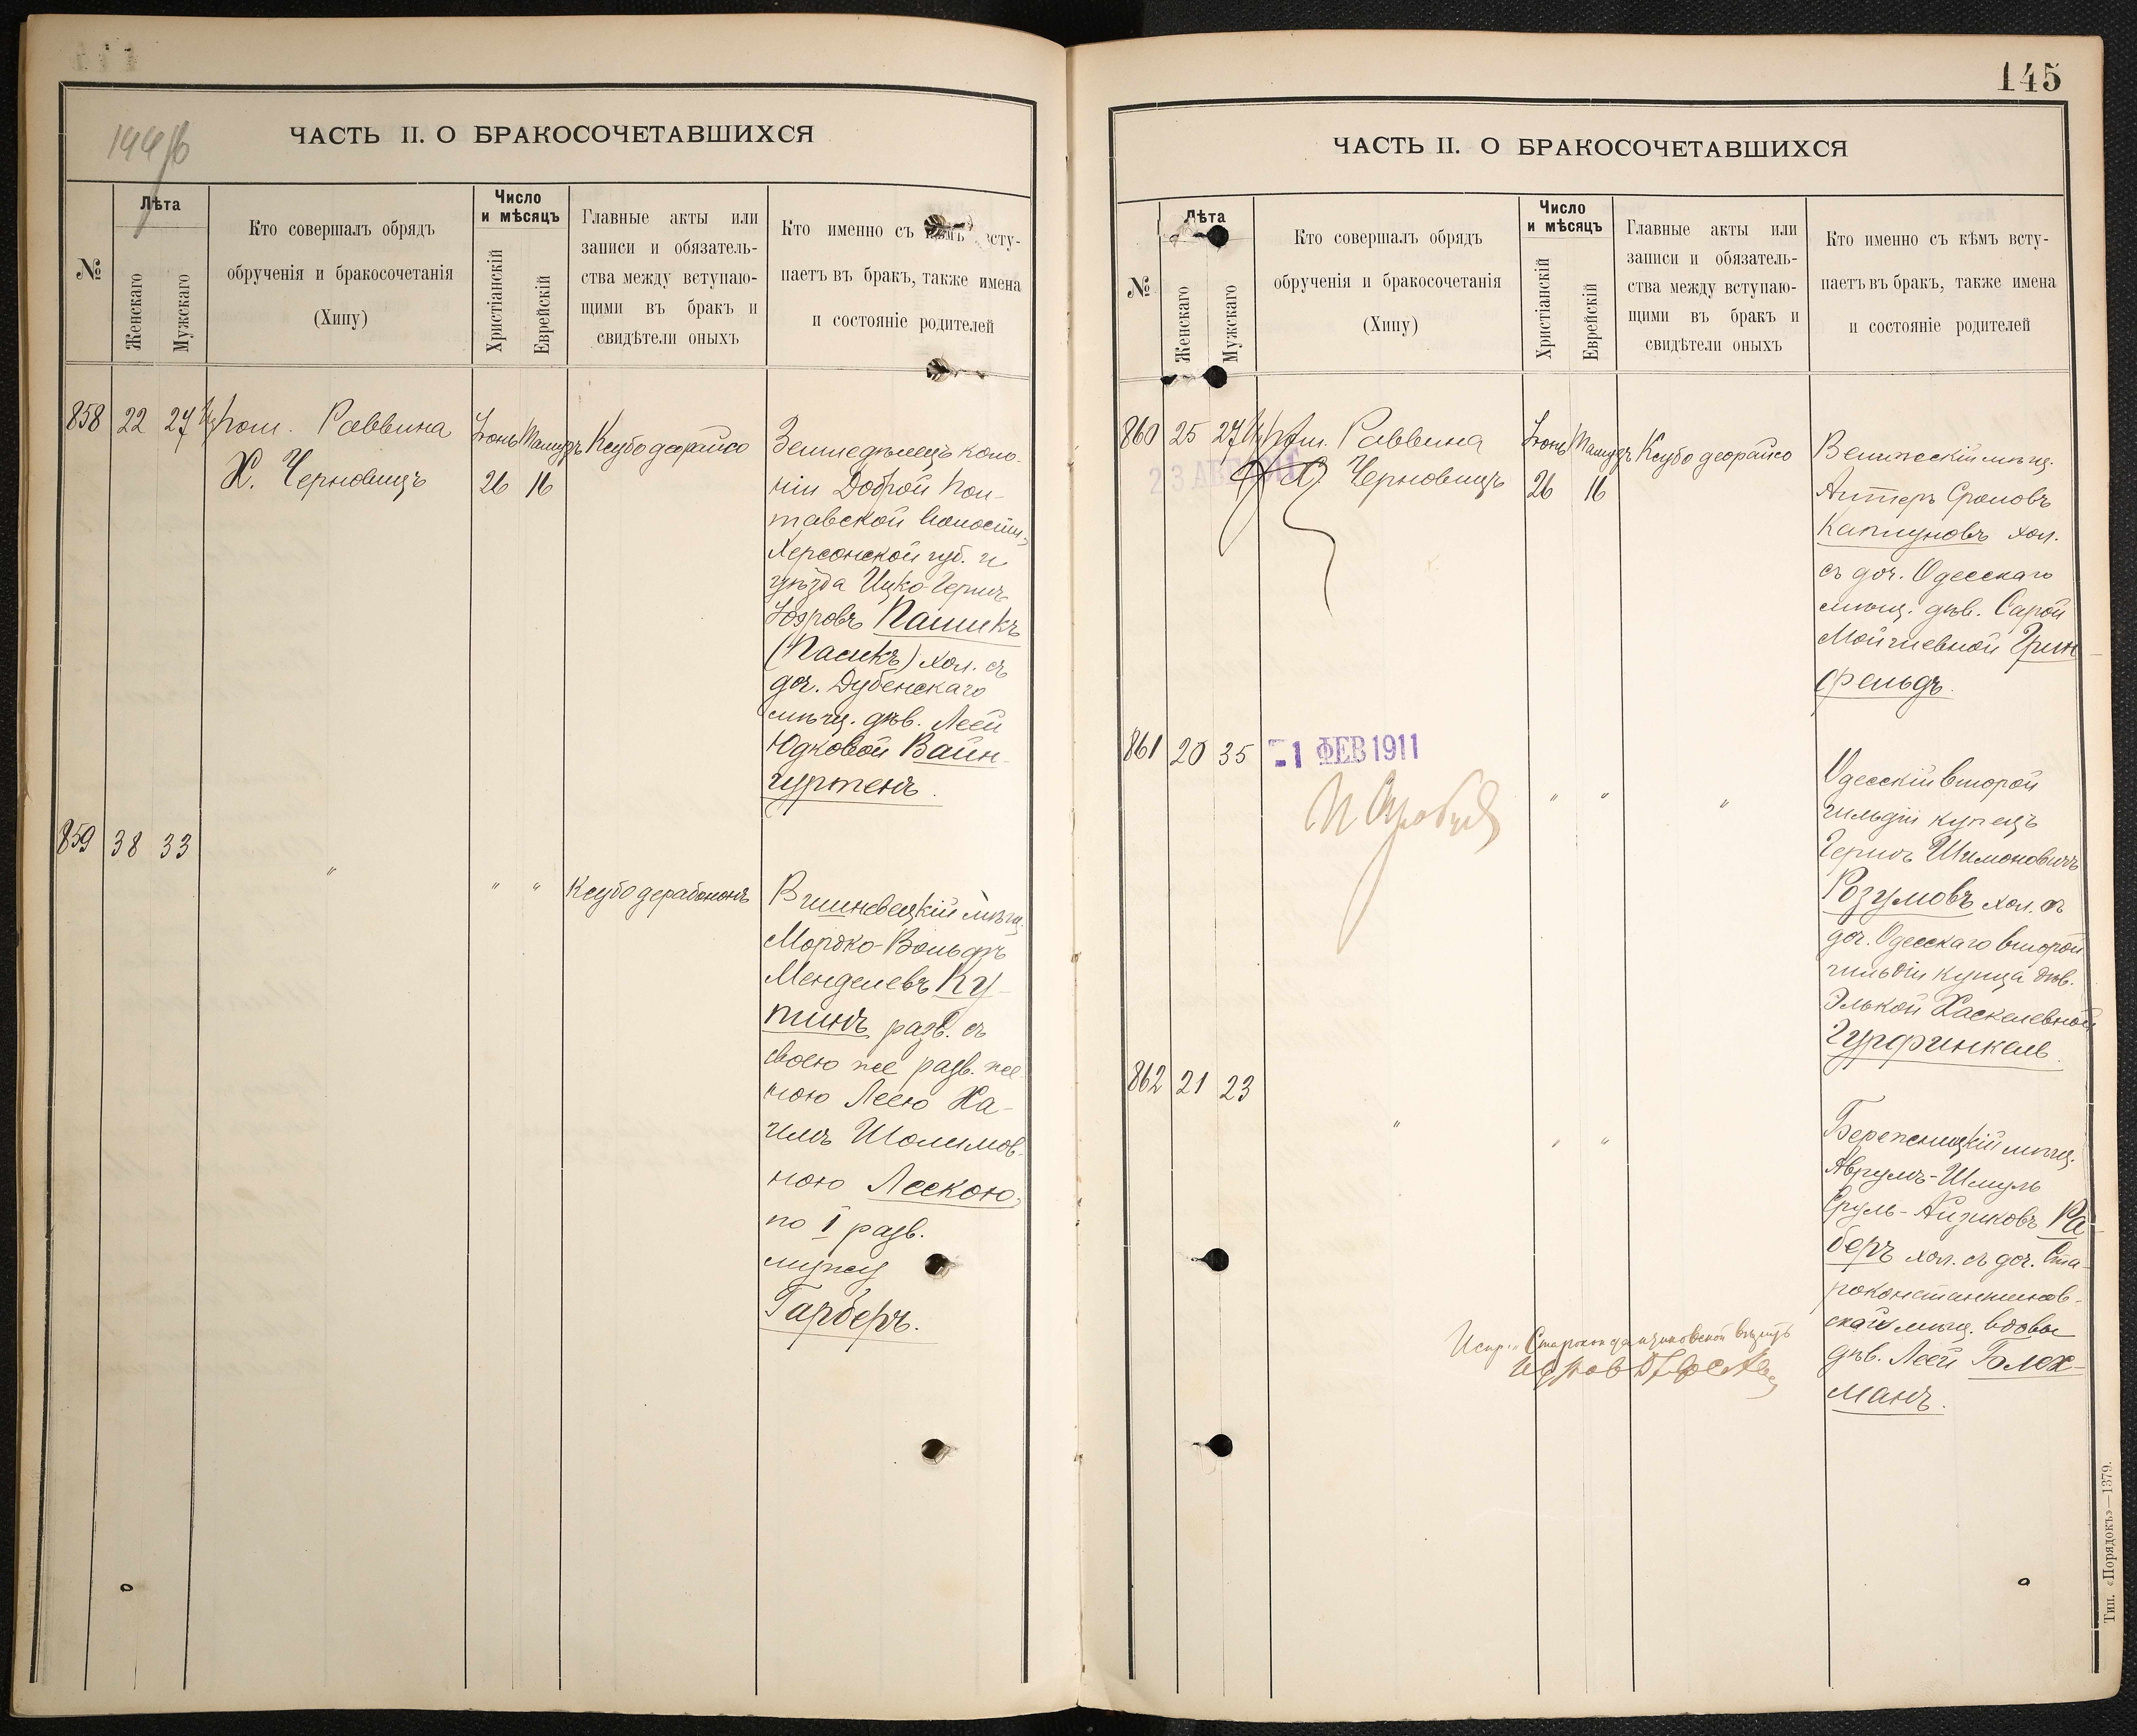 144/б
ЧАСТЬ II. О БРАКОСОЧЕТАВШИХСЯ
№
Лѣта
Женскаго
Мужскаго
Кто совершалъ обрядъ
обрученія и бракосочетанія
(Хипу)
Число
и мѣсяцъ
Христіанскій
Еврейскій
Главные акты или
записи и обязатель-
ства между вступаю-
щими въ бракъ и
свидѣтели оныхъ
Кто именно съ кѣмъ всту-
паетъ въ бракъ, также имена
и состояніе родителей
858 22 27
Пом. Раввина
Х. Черновицъ
Іюнь Тамузъ
26 16
Ксубо деорайсо
Земледѣлецъ коло-
ніи Доброй Пол-
тавской волости,
Херсонской губ. и
уѣзда Ицко-Гершъ
Іозровъ Пашикъ
(Пасикъ) хол. съ
доч. Дубенскаго
мѣщ. дѣв. Леей
Юдковой Вайн-
гуртенъ.
859 38 33
" " "
Ксубо дерабононъ
Вишневецкій мѣщ.
Мордко-Вольфъ
Менделевъ Ку-
пинъ разв. съ
своею же разв. же-
ною Леею Ха-
имъ Шолимов-
ною Лескою,
по I разв.
мужу
Гарберъ.
145
ЧАСТЬ II. О БРАКОСОЧЕТАВШИХСЯ
№
Лѣта
Женскаго
Мужскаго
Кто совершалъ обрядъ
обрученія и бракосочетанія
(Хипу)
Число
и мѣсяцъ
Христіанскій
Еврейскій
Главные акты или
записи и обязатель-
ства между вступаю-
щими въ бракъ и
свидѣтели оныхъ
Кто именно съ кѣмъ всту-
паетъ въ бракъ, также имена
и состояніе родителей
860 25 27
Пом. Раввина
Х. Черновицъ
23 АВГ
Іюнь Тамузъ
26 16
Ксубо деорайсо
Велижскій мѣщ.
Алтеръ Сроловъ
Каплуновъ хол.
съ доч. Одесскаго
мѣщ. дѣв. Сарой
Мойшевной Грин-
фельдъ.
861 20 35
-1 ФЕВ 1911
" " "
Одесскій второй
гильдіи купецъ
Гершъ Шимоновичъ
Розумовъ хол. съ
доч. Одесскаго второй
гильдіи купца дѣв.
Элькой Хаскелевной
Гурфинкель.
862 21 23
" " "
Бережницкій мѣщ.
Аврумъ-Шмуль
Сруль-Айзиковъ Ра-
беръ хол. съ доч. Ста-
роконстантинов-
скаго мѣщ. вдовы
дѣв. Леей Блех-
манъ.
Тип. «Порядокъ»—1379.